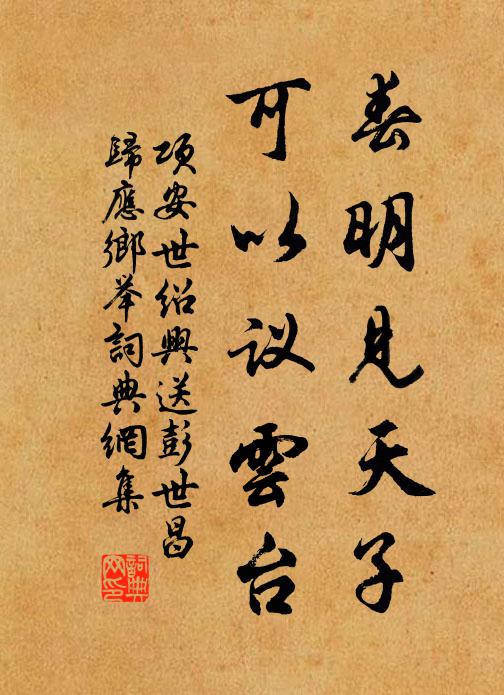 春明見天子
可以议雲台
项安世绍興送彭世昌
歸應鄉举詞典網集
詞典网印